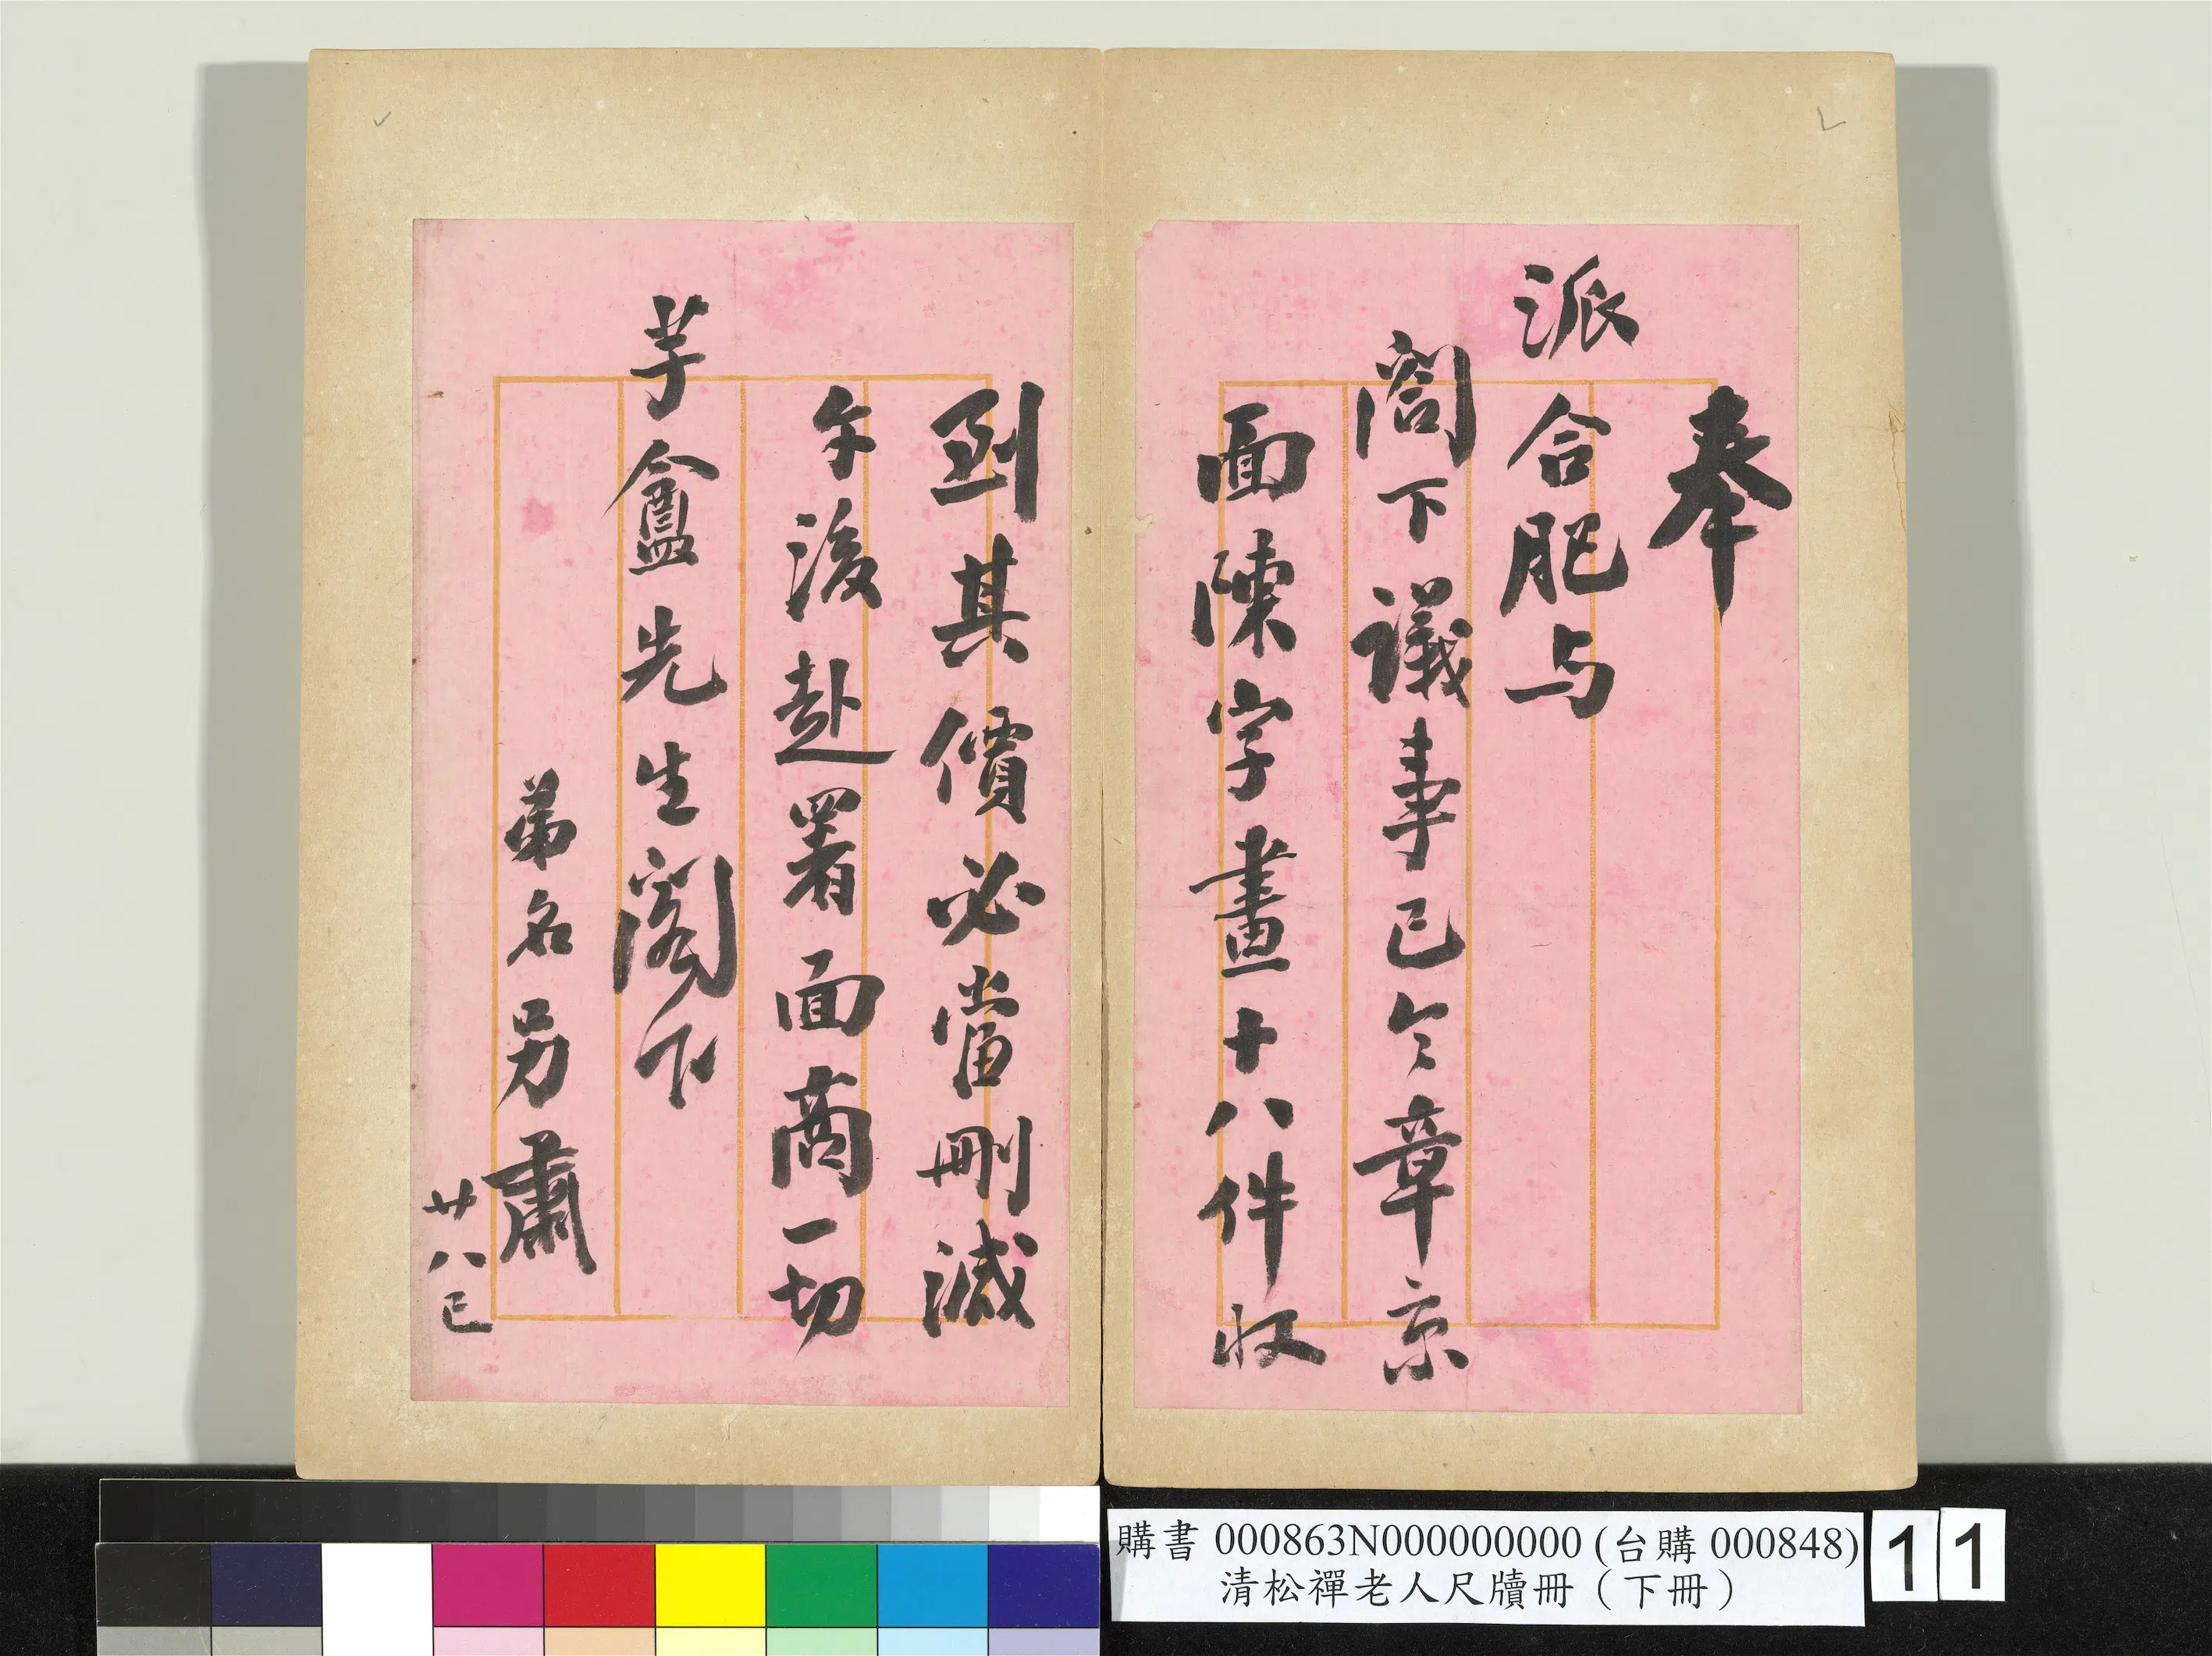 奉
派合肥与
閤下議事已令章京
面陳字畫十八件收
到其價必當刪減
午後赴署面商一切
芋盦先生閣下
弟名另肅
廿八巳
購書 000863N000000000 (台購 000848)
清松禪老人尺牘冊（下冊）
11